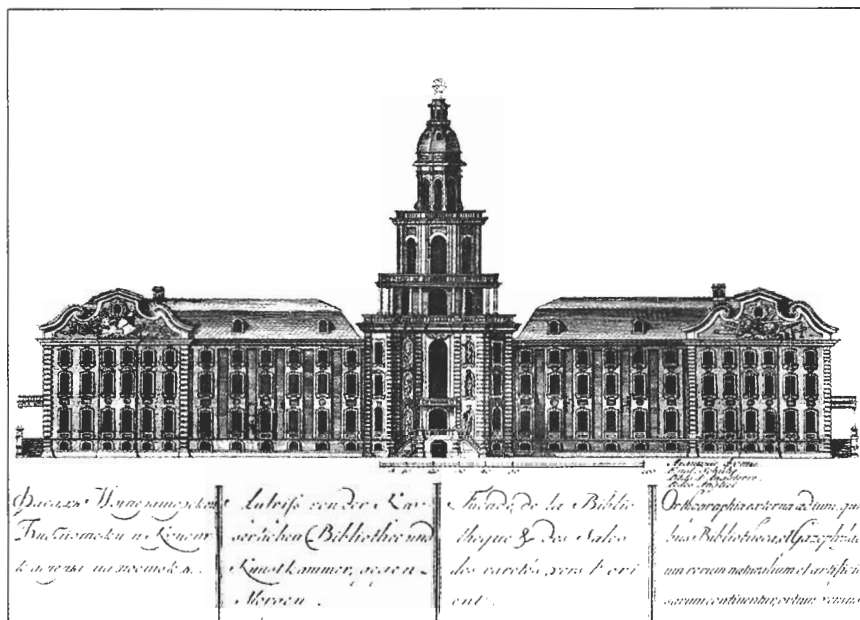 Фасадъ Императорской
Библиотеки и Кунст
камеры на востокъ.
Aufriss von der Kay-
serlichen Bibliothec und
Kunstkammer, gegen
Morgen.
Façade de la Biblio
theque & des Sales
des raretés vers l'ori
ent.
Orthographia externa aedium, qui
bus Bibliotheca et Gazophylac
um rerum naturalium et artificio
sarum continentur, ortum versus